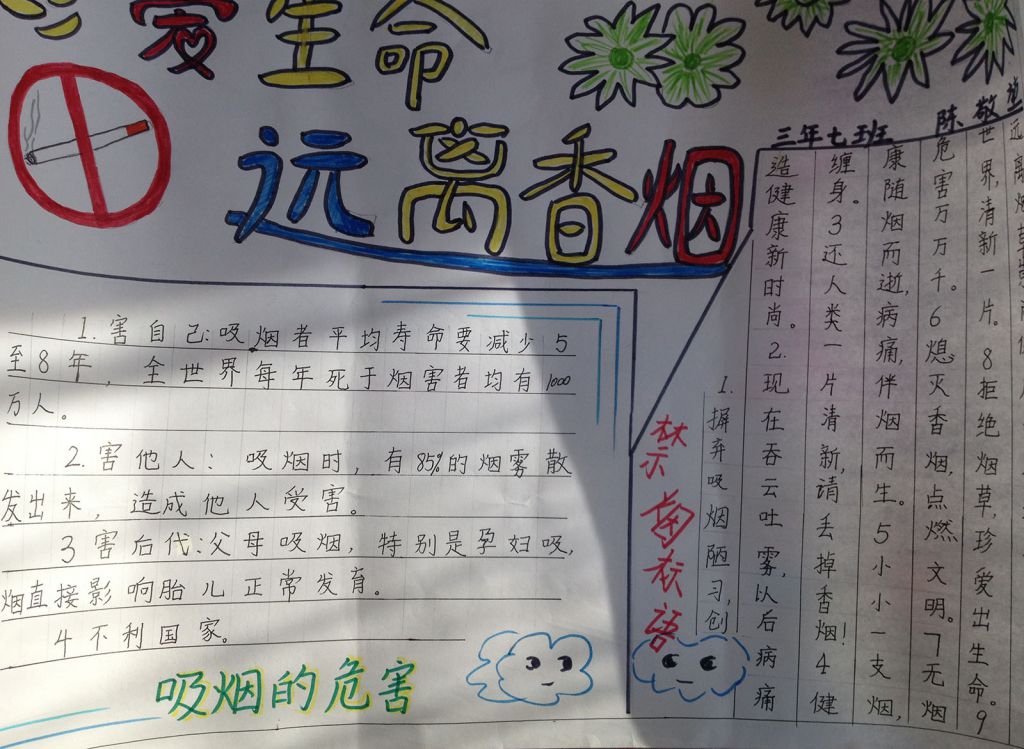 爱生命
远离香烟
三年七班 陈敬
1.害自己:吸烟者平均寿命要减少5
至8年,全世界每年死于烟害者均有1000
万人。
2.害他人:吸烟时,有85%的烟雾散
发出来,造成他人受害。
3害后代:父母吸烟,特别是孕妇吸,
烟直接影响胎儿正常发育。
4不利国家。
吸烟的危害
禁标语
1.摒弃吸烟陋习,创
造健康新时尚。2.现在吞云吐雾,以后病痛
缠身。3还人类一片清新,请丢掉香烟!4健
康随烟而逝,病痛,伴烟而生。5小小一支烟,
危害万万千。6熄灭香烟,点燃文明。7无烟
世界,清新一片。8拒绝烟草,珍爱出生命。9
远离烟草崇尚